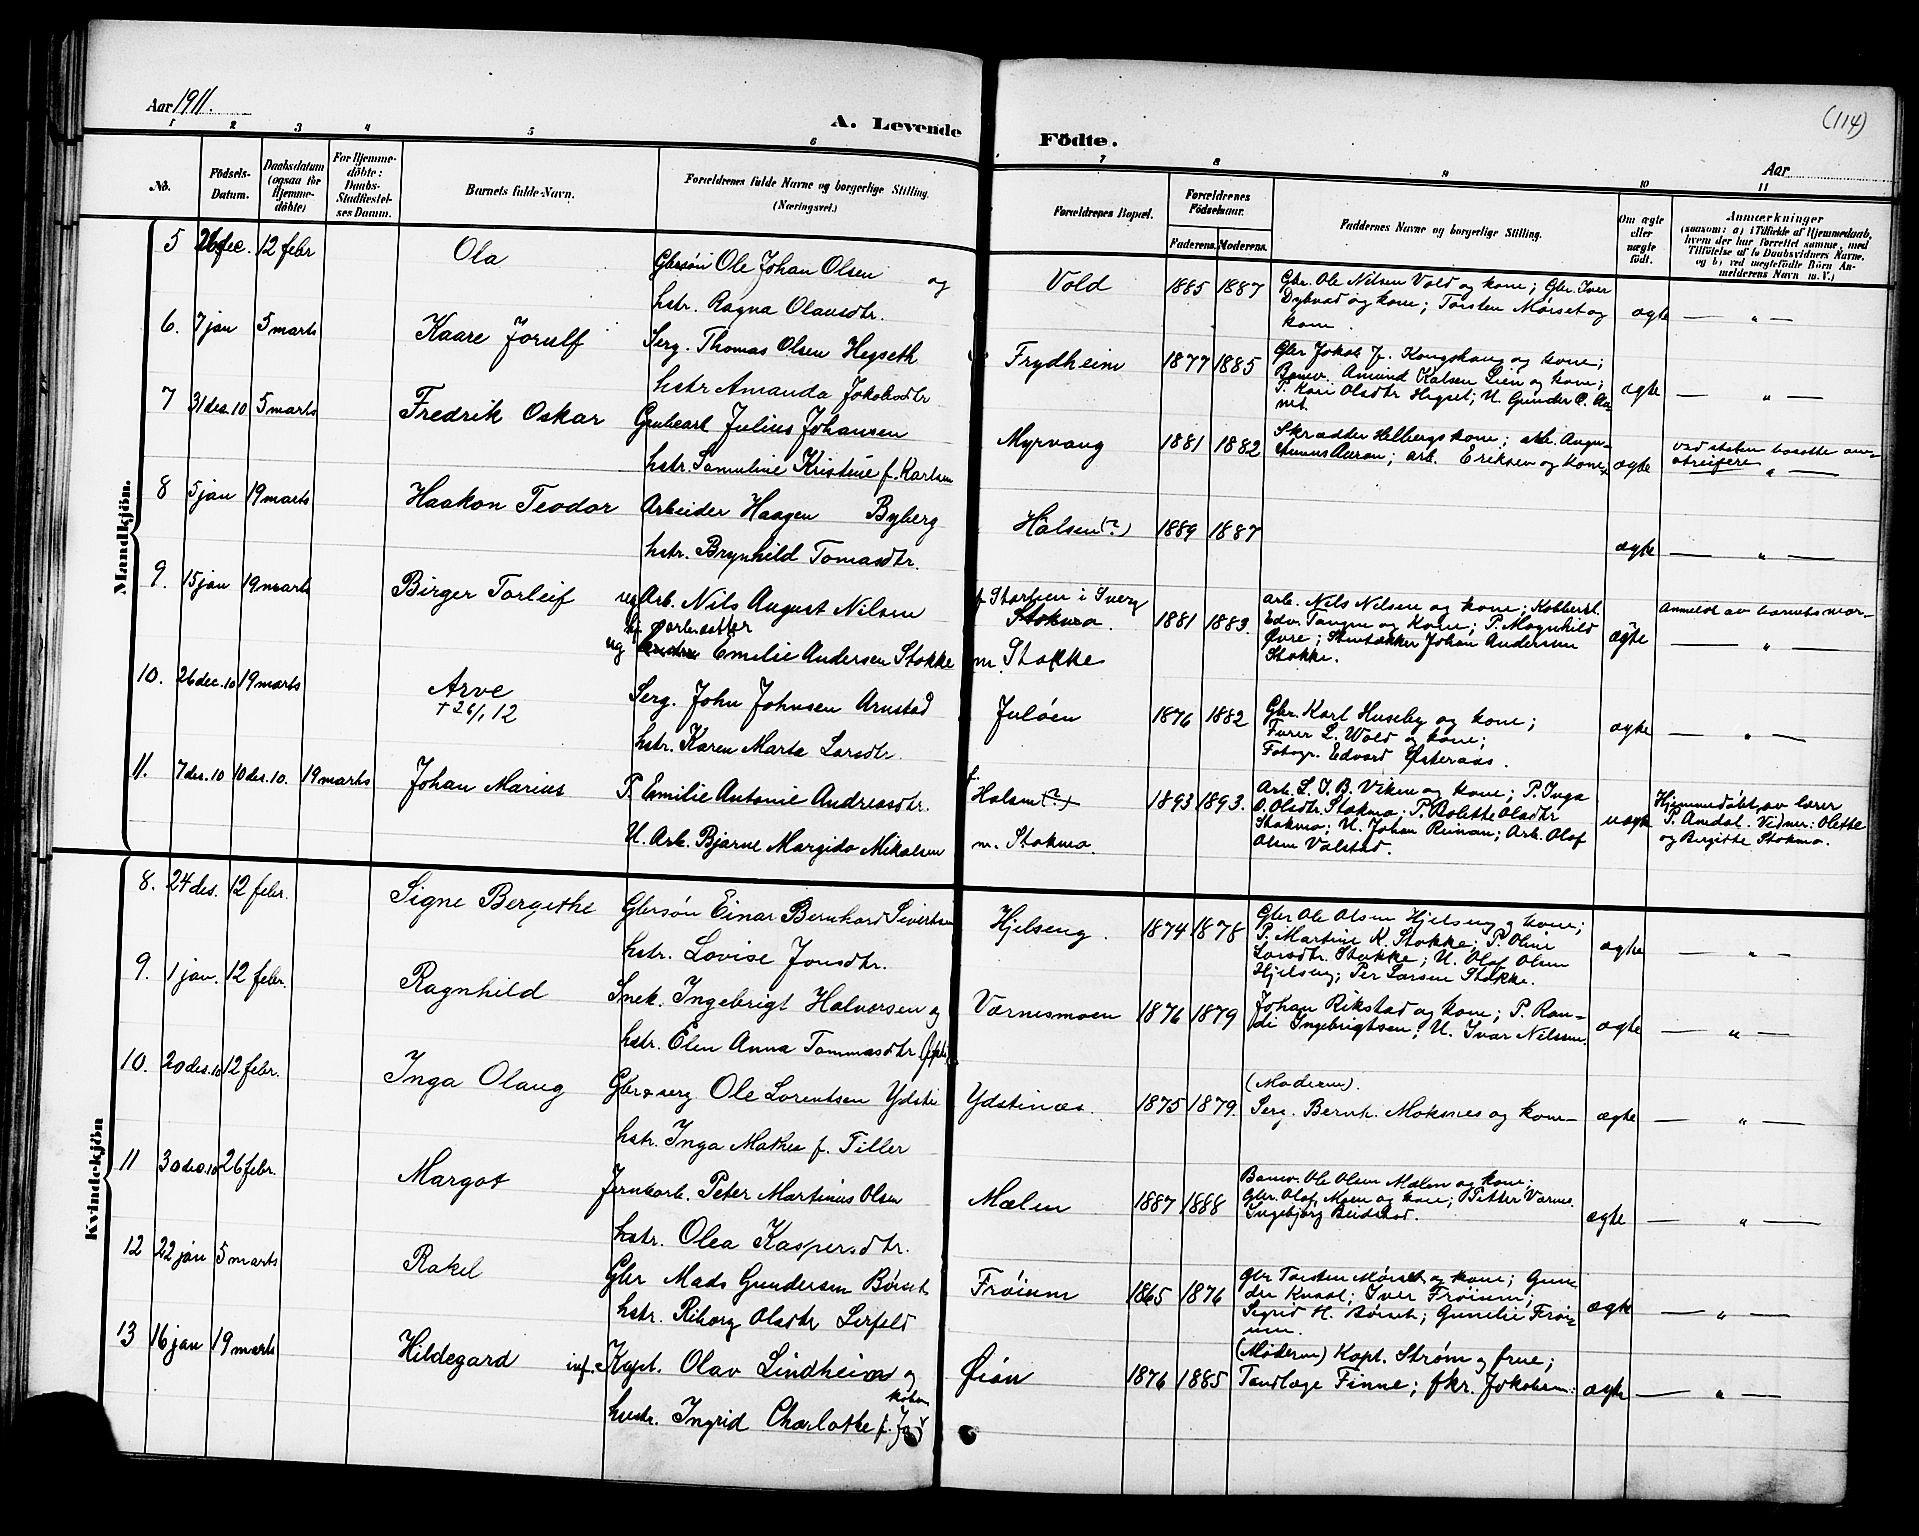 Aar 1911.
A. Levende Födte.
(114)
Aar
1 2 3 4 5 6 7 8 9 10 11
No.
Födsels-Datum.
Daabsdatum (ogsaa for Hjemmedøbte)
For Hjemmedøbte: Daabs-Stadfæstelses Datum.
Barnets fulde Navn.
Forældrenes fulde Navne og borgerlige Stilling. (Næringsvei.)
Forældrenes Bopæl.
Forældrenes Födselsaar.
Faderens. Moderens.
Faddernes Navne og borgerlige Stilling.
Om ægte eller uægte födt.
Anmærkninger (saasom: a) i Tilfælde af Hjemmedaab, hvem der har forrettet samme, med Tilföielse af to Daabsvidners Navne, og b) ved uegtefödte Börn Anmelderens Navn m. V.)
Mandkjön.
5 26 dec. 12 febr Ola Gbrsön Ole Johan Olsen og Vold 1885 1887 Gbr. Ole Nilsen Vold og kone; Gbr. Iver
hstr. Ragna Olausdtr. Dybvad og kone; Torsten Mørset og
kone. ægte — " —
6. 7 jan 5 marts Kaare Jorulf Serg. Thomas Olsen Hegseth Frydheim 1877 1885 Gbr Jakob J. Kongshaug og kone;
hstr Amanda Jakobsdtr Banev. Amund Kalsen Lien og kone;
P. Kari Olsdtr Hegset; U. Gunder O. ægte — " —
7 31 des. 10 5 marts Fredrik Oskar Grubearb Julius Johansen Myrvang 1881 1882 Skrædder Helbergs kone; arb. Augu-
hstr. Samuline Kristine f. Karlsen Auran; arb. Eriksen og kone ægte — " —
8 5 jan 19 marts Haakon Teodor Arbeider Haagen Byberg Halsen (?) 1889 1887
hstr. Brynhild Tomasdtr. ægte — " —
9. 15 jan 19 marts Birger Torleif ug Arb. Nils August Nilsen f Storlien i Sverg 1881 1883. arb. Nils Nilsen og kone; Kobberst. Anmeldt av barnets mor
Stokmo. Edv. Tangen og kone; P. Magnhild
ug Emilie Andersen Stokke m. Stokke Øvre; Johan Andersen
Stokke. ægte — " —
10. 26 dec. 10 19 marts Arve Serg. John Johnsen Arnstad Juløen 1876 1882 Gbr. Karl Huseby og kone;
+ 26/1 12 hstr. Karen Marta Larsdtr. Furer L. Wold og kone;
Fotogr. Edvard Østeraas. ægte — " —
11. 7 des. 10 10 des. 10. 19 marts Johan Marius P. Emilie Antonie Andreasdtr. f. Halsen (?) 1893 1893. Arb. L. J. B. Viken og kone; P. Inga Hjemmedøbt av lærer
O. Olsdtr. Stokmo; P. Bolette Olsdtr P. Amdal. Vidner: Olette
U. Arb. Bjarne Margido Mikalsen m. Stokmo. Stokmo; U. Johan Runan; Arb. Olaf uægte og Bergitte Stokmo.
Olsen Valstad.
Kvindekjön
8. 24 des. 12 febr. Signe Bergithe Gbrsön Einar Bernhard Sivertsen Hjelseng. 1874 1878 Gbr Ole Olsen Hjelseng og kone;
hstr. Lovise Jonsdtr. P. Martine K. Stokke; P. Oline
Larsdtr. Stokke; U. Olaf Olsen
Hjelseng; Per Larsen Stokke. ægte — " —
9. 1 jan. 12 febr. Ragnhild Snek. Ingebrigt Halvorsen og Værnesmoen 1876 1879 Johan Rikstad og kone; P. Ran-
hstr. Elen Anna Tommasdtr di Ingebrigtsen; U. Ivar Nilssen. ægte — " —
10. 20 des. 10 12 febr. Inga Olaug Gbr & serg Ole Lorentsen Ydsti Ydstinæs. 1875 1879. (Moderen).
hstr. Inga Mathea f. Tiller Serg. Bernh. Moksnes og kone ægte — " —
11 30 des. 10 26 febr. Margot Jernbarb. Peter Martinus Olsen Mælen 1887 1888 Banev. Ole Olsen Mælen og kone;
hstr. Olea Kaspersdtr. Gbr. Olof Moen og kone; Petter Værne.
Ingebjørg Beidstad. ægte — " —
12 22 jan 5 marts Rakel Gbr Mads Gundersen Børset Frøium 1865 1876 Gbr Torsten Mørset og kone; Gun-
hstr. Riborg Olsdtr Leirfeld der Kvaal; Iver Frøium;
Sigrid H. Børset; Gunelie Frøi-
um. ægte — " —
13 16 jan 19 marts Hildegard inf. Kapt. Olav Lindheim og Øiön 1876 1885 (Moderen) Kapt. Strøm og frue;
hustr. Ingrid Charlotte f. Tandlæge Finne; frk. Jakobsen. ægte — " —